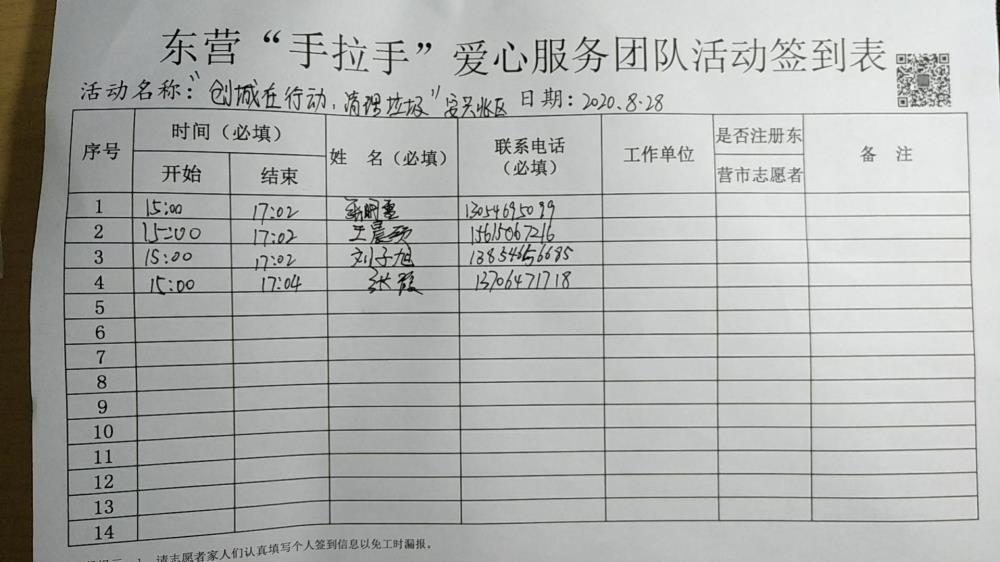 东营“手拉手”爱心服务团队活动签到表
活动名称：“创城在行动，清理垃圾”安兴北区 日期：2020.8.28
序号 时间（必填） 姓 名（必填） 联系电话（必填） 工作单位 是否注册东营市志愿者 备 注
开始 结束
1 15:00 17:02 13054695099
2 15:00 17:02 王晨 15615067216
3 15:00 17:02 刘子旭 13854656685
4 15:00 17:04 张霞 13706471718
5
6
7
8
9
10
11
12
13
14
1、请志愿者家人们认真填写个人签到信息以免工时漏报。